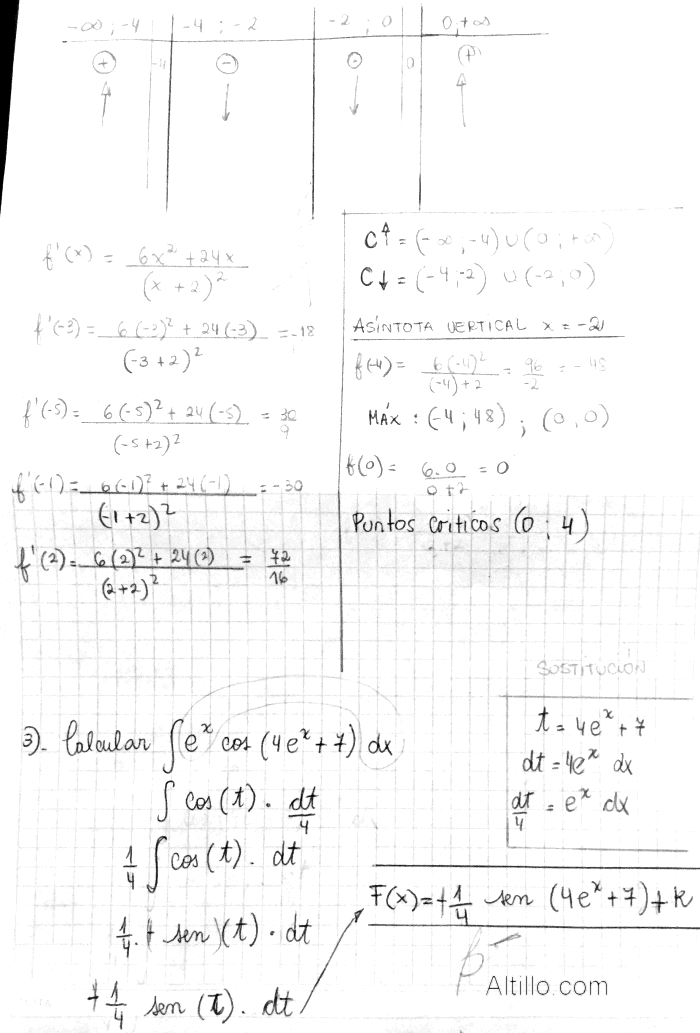 -∞ ; -4 | -4 ; -2 | -2 ; 0 | 0 ; +∞
+ | -4 | - | - | 0 | +
↑ ↓ ↓ ↑
f'(x) = (6x² + 24x) / (x + 2)²
f'(-3) = (6(-3)² + 24(-3)) / (-3 + 2)² = -18
f'(-5) = (6(-5)² + 24(-5)) / (-5+2)² = 30/9
f'(-1) = (6(-1)² + 24(-1)) / (-1+2)² = -30
f'(2) = (6(2)² + 24(2)) / (2+2)² = 72/16
C↑ = (-∞ ; -4) ∪ (0 ; +∞)
C↓ = (-4 ; -2) ∪ (-2, 0)
ASÍNTOTA VERTICAL x = -2
f(-4) = 6(-4)² / (-4)+2 = 96/-2 = -48
MÁX : (-4 ; 48) ; (0, 0)
f(0) = 6.0 / 0+2 = 0
Puntos criticos (0 ; 4)
SUSTITUCIÓN
t = 4eˣ + 7
dt = 4eˣ dx
dt/4 = eˣ dx
3). Calcular ∫ eˣ cos (4eˣ + 7) dx
∫ cos(t) . dt/4
1/4 ∫ cos(t) . dt
1/4 . + sen)(t) . dt
+ 1/4 sen (t) . dt
F(x) = + 1/4 sen (4eˣ + 7) + K
Altillo.com